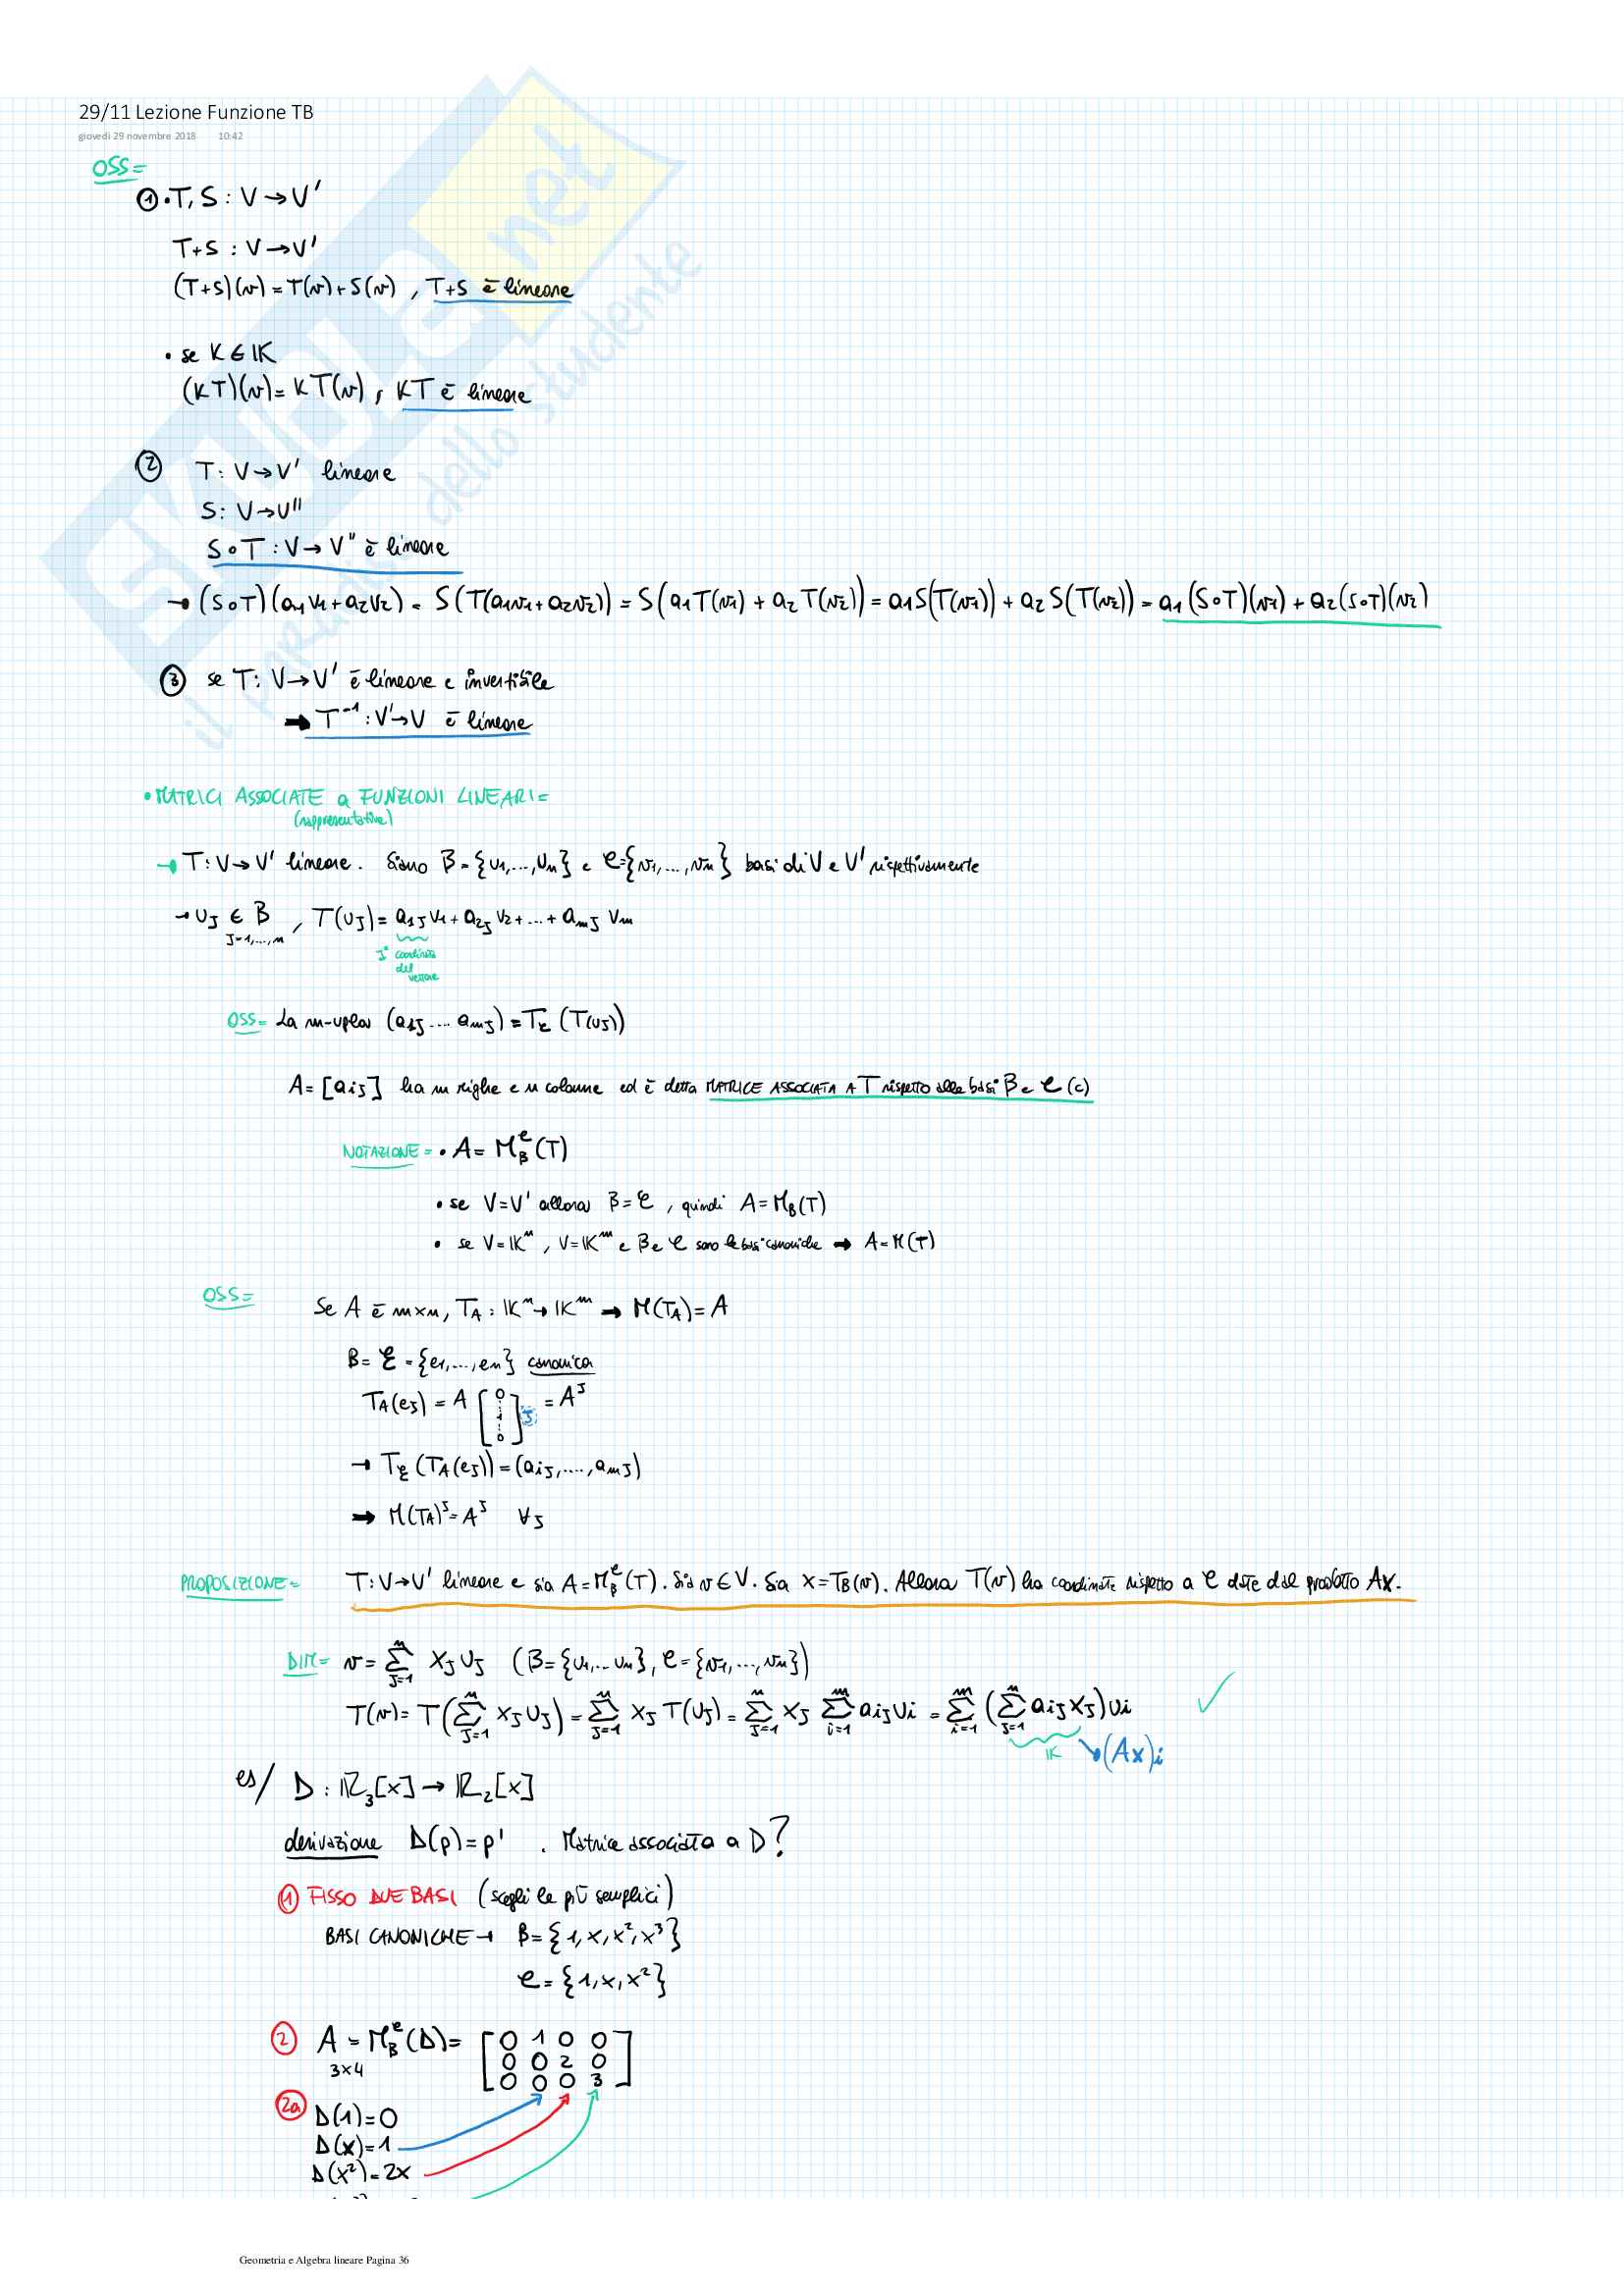 29/11 Lezione Funzione TB
giovedì 29 novembre 2018 10:42
OSS=
① • T, S : V → V'
T+S : V → V'
(T+S)(v) = T(v) + S(v) , T+S è lineare
• se K ∈ 𝕂
(KT)(v) = KT(v) , KT è lineare
② T : V → V' lineare
S : V → V''
S∘T : V → V'' è lineare
→ (S∘T)(a₁v₁+a₂v₂) = S(T(a₁v₁+a₂v₂)) = S(a₁T(v₁) + a₂T(v₂)) = a₁S(T(v₁)) + a₂S(T(v₂)) = a₁(S∘T)(v₁) + a₂(S∘T)(v₂)
③ se T : V → V' è lineare e invertibile
➡ T⁻¹ : V' → V è lineare
• MATRICI ASSOCIATE a FUNZIONI LINEARI =
(rappresentative)
→ T : V → V' lineare. Siano B = {u₁,...,uₙ} e C = {v₁,...,vₘ} basi di V e V' rispettivamente
→ uⱼ ∈ B , T(uⱼ) = a₁ⱼv₁ + a₂ⱼv₂ + ... + aₘⱼvₘ
J=1,...,n
Jª coordinata
del
vettore
OSS= La m-upla (a₁ⱼ .... aₘⱼ) = T_C (T(uⱼ))
A = [aᵢⱼ] ha m righe e n colonne ed è detta MATRICE ASSOCIATA A T rispetto alle basi B e C (c)
NOTAZIONE = • A = M_B^C (T)
• se V=V' allora B=C , quindi A=M_B(T)
• se V=𝕂ⁿ , V=𝕂ᵐ e B e C sono le basi canoniche ➡ A=M(T)
OSS=
Se A è m×n, T_A : 𝕂ⁿ → 𝕂ᵐ ➡ M(T_A) = A
B = ℰ = {e₁,...,eₙ} canonica
T_A(eⱼ) = A [0 ⋮ 1 ⋮ 0] J = Aᴶ
→ T_ℰ (T_A(eⱼ)) = (aᵢⱼ,....,aₘⱼ)
➡ M(T_A)ᴶ = Aᴶ ∀ J
PROPOSIZIONE = T : V → V' lineare e sia A = M_B^C (T). Sia v ∈ V. Sia X = T_B(v). Allora T(v) ha coordinate rispetto a C date dal prodotto AX.
DIM= v = Σ_{J=1}^n Xⱼuⱼ (B = {u₁,... uₙ}, C = {v₁,...,vₘ})
T(v) = T(Σ_{J=1}^n Xⱼuⱼ) = Σ_{J=1}^n XⱼT(uⱼ) = Σ_{J=1}^n Xⱼ Σ_{i=1}^m aᵢⱼvᵢ = Σ_{i=1}^m (Σ_{J=1}^n aᵢⱼXⱼ)vᵢ ✓
𝕂 (AX)ᵢ
es/ D : ℝ₃[x] → ℝ₂[x]
derivazione D(p) = p' . Matrice associata a D?
① FISSO DUE BASI (scegli le più semplici)
BASI CANONICHE → B = {1, x, x², x³}
C = {1, x, x²}
② A = M_B^C (D) = [0 1 0 0
3×4 0 0 2 0
0 0 0 3]
2a D(1) = 0
D(x) = 1
D(x²) = 2x
Geometria e Algebra lineare Pagina 36
SKUOLA.net
il paradiso dello studente